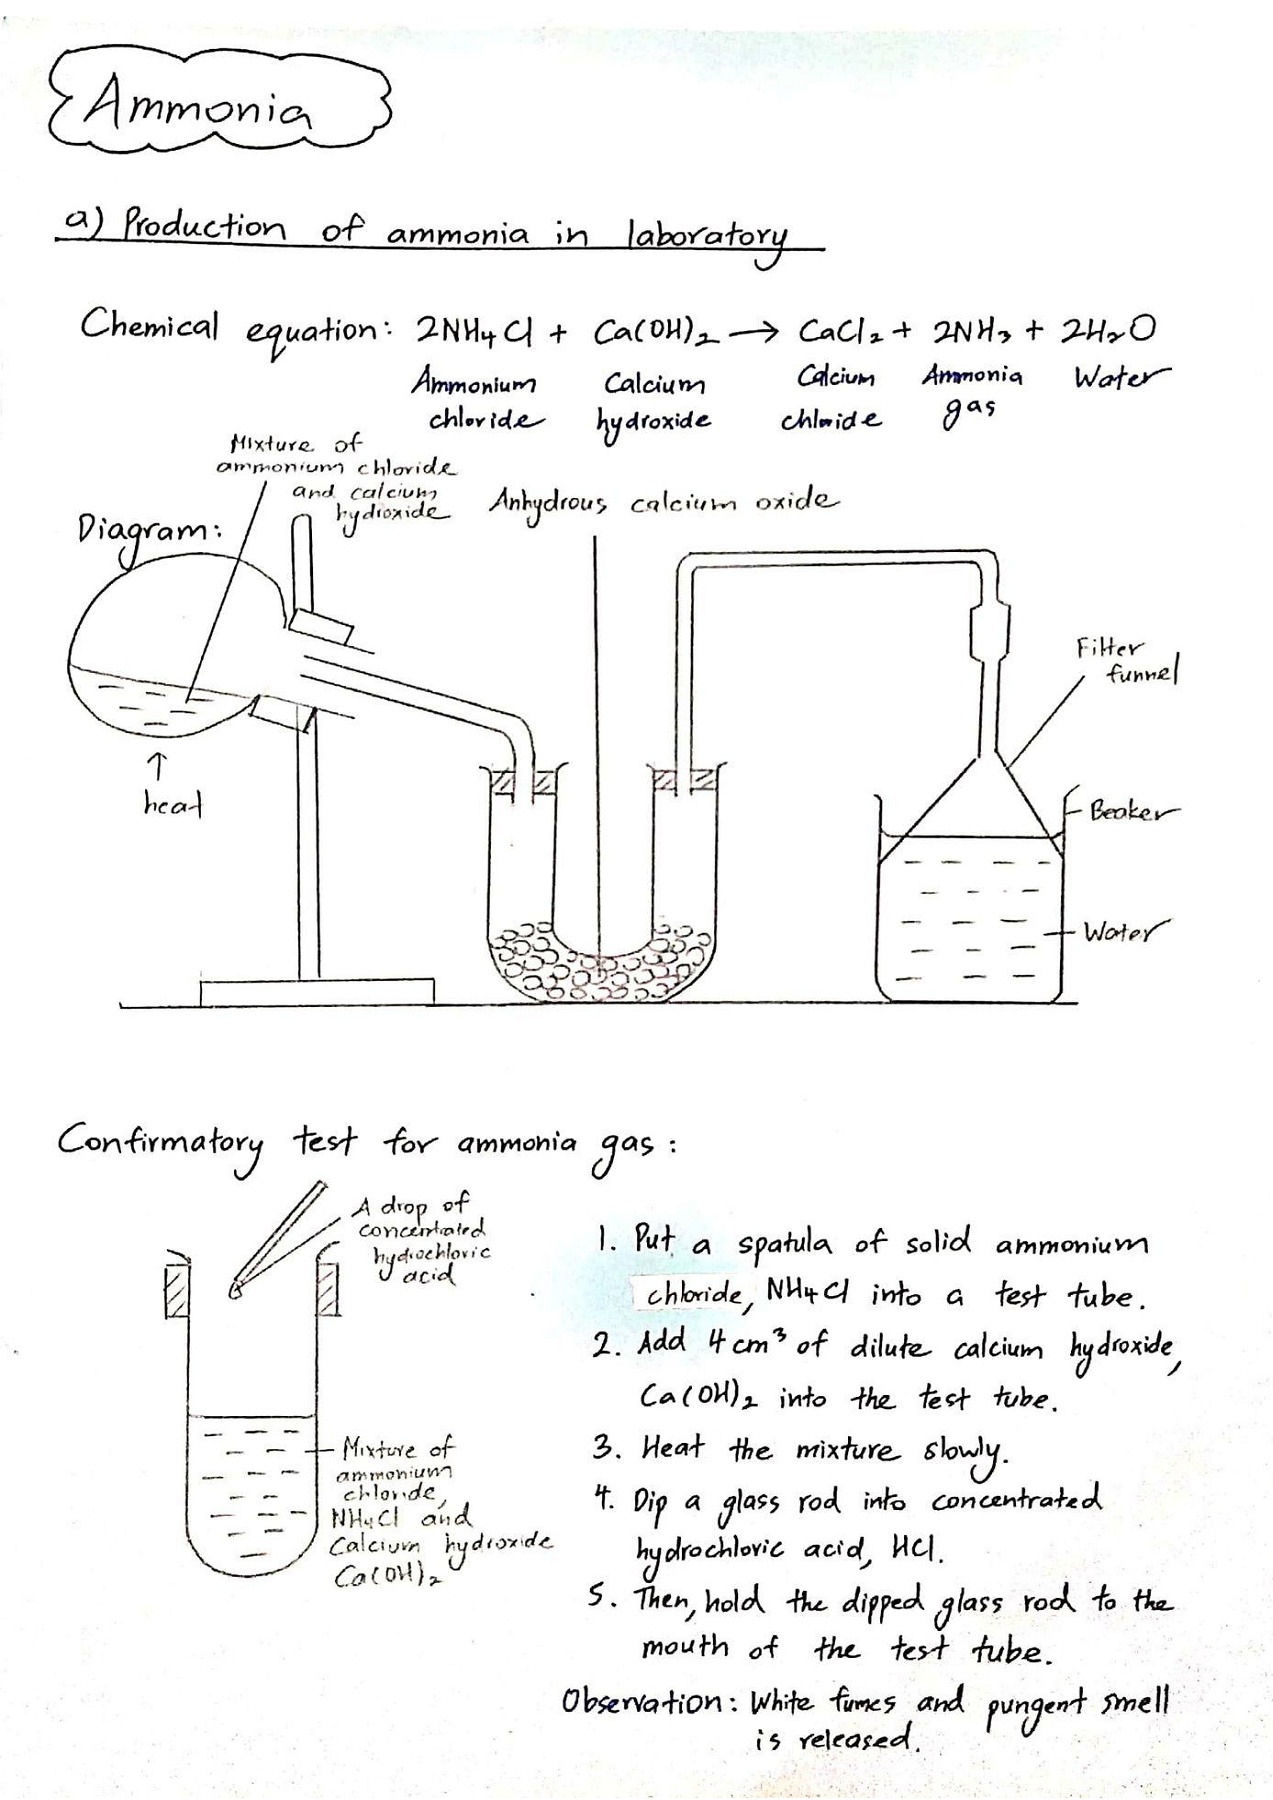 Ammonia
a) Production of ammonia in laboratory
Chemical equation: 2NH₄Cl + Ca(OH)₂ → CaCl₂ + 2NH₃ + 2H₂O
Ammonium Calcium Calcium Ammonia Water
chloride hydroxide chloride gas
Mixture of
ammonium chloride
and calcium
hydroxide
Anhydrous calcium oxide
Diagram:
Filter
funnel
heat
Beaker
Water
Confirmatory test for ammonia gas:
A drop of
concentrated
hydrochloric
acid
Mixture of
ammonium
chloride,
NH₄Cl and
Calcium hydroxide
Ca(OH)₂
1. Put a spatula of solid ammonium
chloride, NH₄Cl into a test tube.
2. Add 4 cm³ of dilute calcium hydroxide,
Ca(OH)₂ into the test tube.
3. Heat the mixture slowly.
4. Dip a glass rod into concentrated
hydrochloric acid, HCl.
5. Then, hold the dipped glass rod to the
mouth of the test tube.
Observation: White fumes and pungent smell
is released.